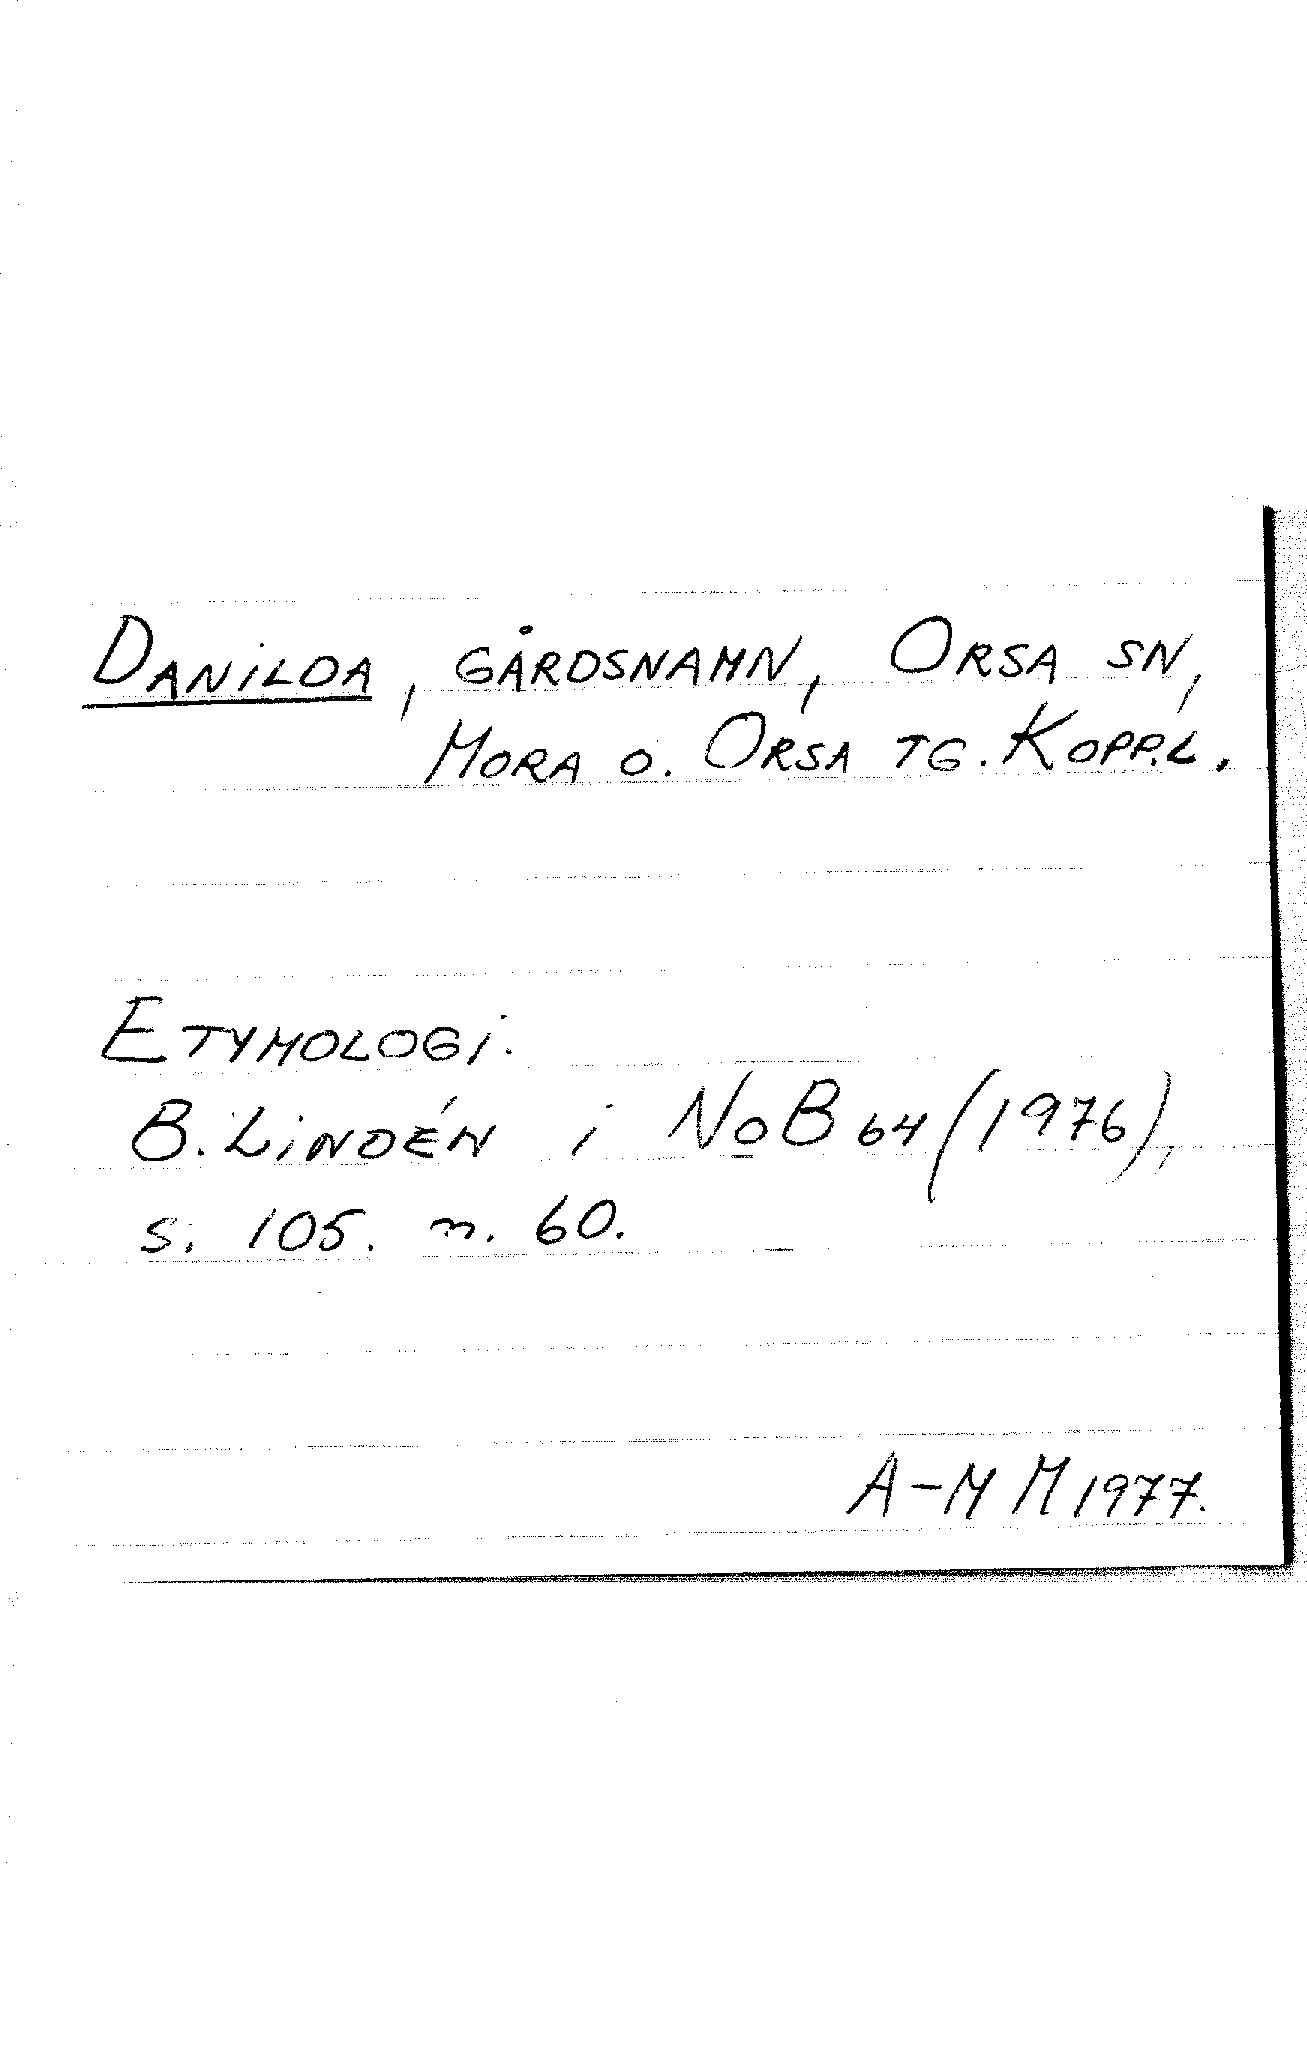 DANILDA, GÅRDSNAMN, ORSA SN,
MORA O. ORSA TG. KOPP.L.
ETYMOLOGI.
B. LINDÉN i NoB 64 (1976),
s. 105. n. 60.
A-M M 1977.